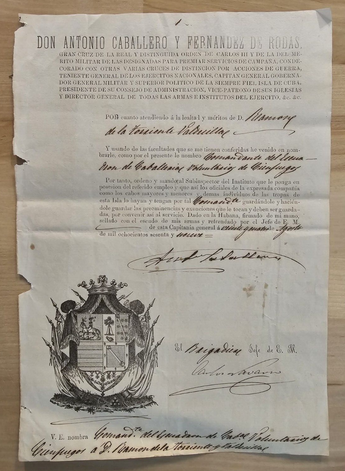 DON ANTONIO CABALLERO Y FERNANDEZ DE RODAS,
GRAN CRUZ DE LA REAL Y DISTINGUIDA ORDEN DE CARLOS III Y DE LA DEL MÉ-
RITO MILITAR DE LAS DESIGNADAS PARA PREMIAR SERVICIOS DE CAMPAÑA, CONDE-
CORADO CON OTRAS VARIAS CRUCES DE DISTINCION POR ACCIONES DE GUERRA,
TENIENTE GENERAL DE LOS EJERCITOS NACIONALES, CAPITAN GENERAL, GOBERNA-
DOR GENERAL MILITAR Y SUPERIOR POLITICO DE LA SIEMPRE FIEL ISLA DE CUBA,
PRESIDENTE DE SU CONSEJO DE ADMINISTRACION, VICE-PATRONO DE SUS IGLESIAS
Y DIRECTOR GENERAL DE TODAS LAS ARMAS E INSTITUTOS DEL EJERCITO, &c. &c.
POR cuanto atendiendo á la lealtad y méritos de D. Ramon
de la Torriente
Y usando de las facultades que se me tienen conferidas he venido en nom-
brarlo, como por el presente le nombro Comandante del Escua
dron de Caballeria Voluntarios de Cienfuegos
Por tanto, ordeno y mando al Subins del Instituto que le ponga en
posesion del referido empleo y que así los oficiales de la espresada compañía
como los demas cabos mayores y menores y demas individuos de las tropas de
esta Isla le hayan y tengan por tal Comandante guardándole y haciéndo-
le guardar las preeminencias y exenciones que le tocan y deben ser guarda-
das, por convenir así al servicio. Dado en la Habana, firmado de mi mano,
sellado con el escudo de mis armas y refrendado por el Jefe de E. M.
de esta Capitanía general á veinte y cuatro Agosto
de mil ochocientos sesenta y nueve
El Brigadier Jefe de E. M.
V. E. nombra Comand.te del Escuadron de Cab.a Voluntarios de
Cienfuegos á D. Ramon de la Torriente y